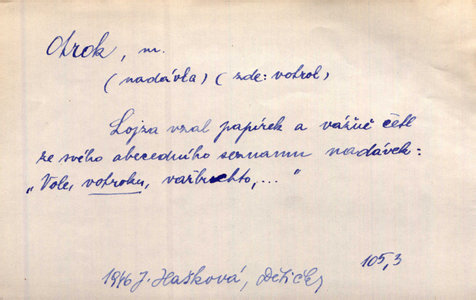 Otrok, m.
(nadávka) (zde: votrok)
Lojza vzal papírek a vážně četl
ze svého abecedního seznamu nadávek:
„Vole, votroku, vařbuchto,..."
105,3
1946 J. Hašková, Dětičky